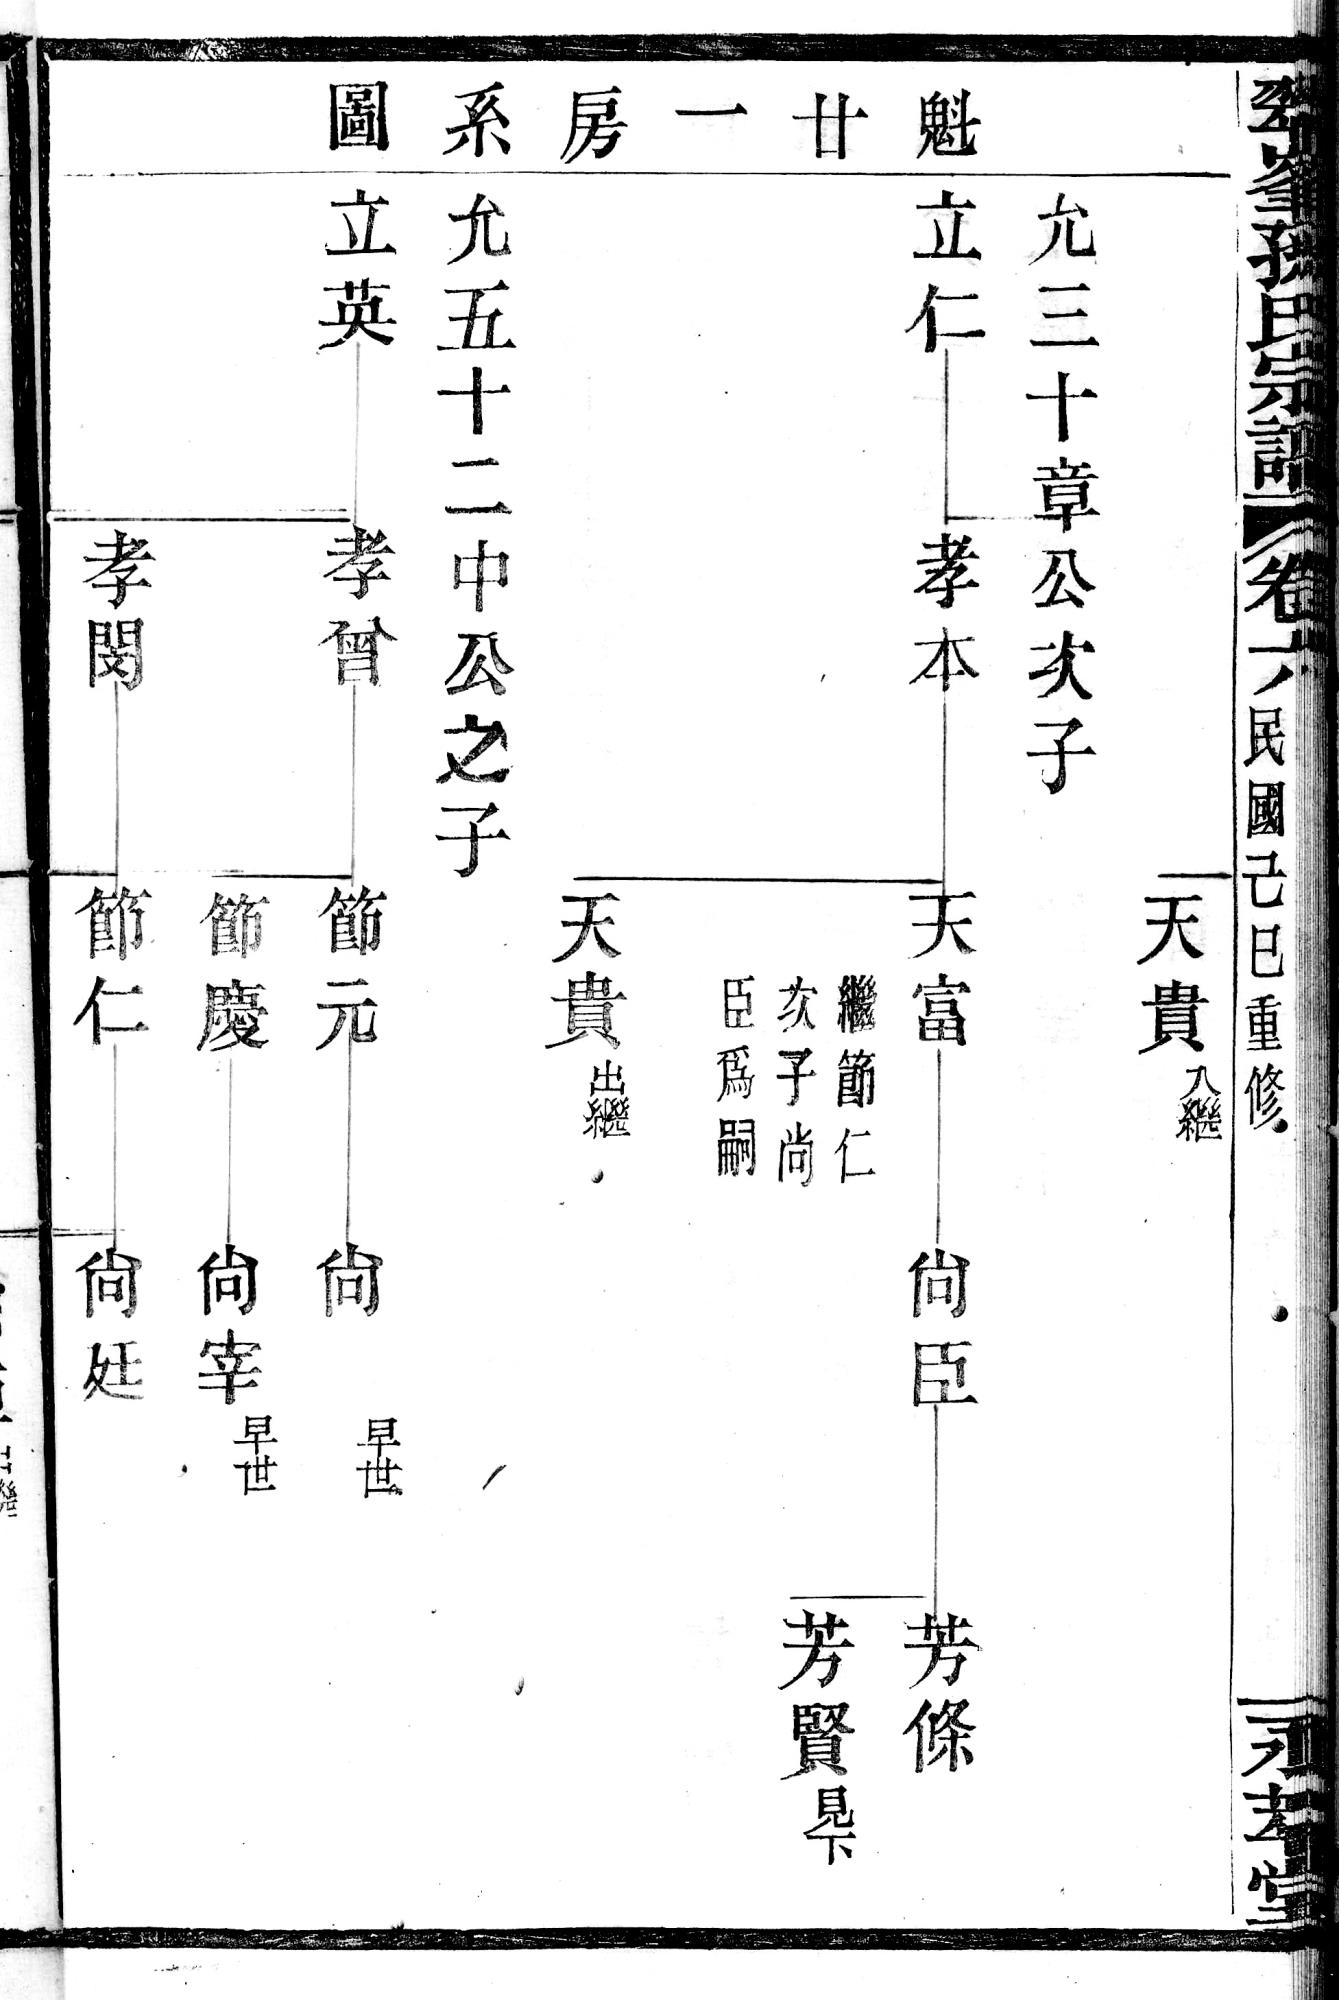 孫氏宗譜
卷六
民國己巳重修
孝堂
魁廿一房系圖
天貴 入繼
允三十章公次子
立仁
孝本
天富
繼節仁
次子尚
臣爲嗣
尙臣
芳條
芳賢 見下
天貴 出繼
允五十二中公之子
立英
孝曾
節元
尙 早世
節慶
尙宰 早世
孝閔
節仁
尙廷